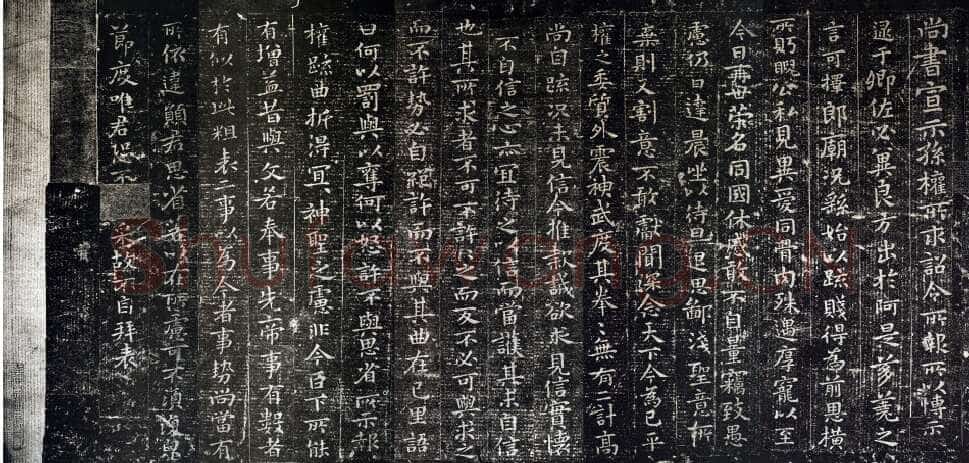 尚書宣示孫權所求詔令所報所以博示
逮于卿佐必冀良方出於阿是芻蕘之
言可擇郎廟況繇始以疏賤得為前恩橫
所盼睨公私見異愛同骨肉殊遇厚寵以至
今日再世榮名同國休慼敢不自量竊致愚
慮仍日達晨坐以待旦退思鄙淺聖意所
棄則又割意不敢獻聞深念天下今為已平
權之委質外震神武度其拳〻無有二計高
尚自疏況未見信今推款誠欲求見信實懷
不自信之心亦宜待之以信而當護其未自信
也其所求者不可不許許之而反不必可與求之
而不許勢必自絕許而不與其曲在己里語
曰何以罰與以奪何以怒許不與思省所示報
權疏曲折得宜宜神聖之慮非今臣下所能
有增益昔與文若奉事先帝事有數者
有似於此粗表二事以為今者事勢尚當有
所依違願君思省若以在所慮可不須
節度唯君恐不采故不自拜表